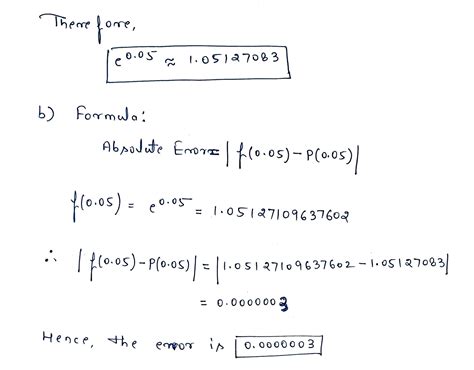 Therefore,
e^0.05 ≈ 1.05127083
b) Formula:
Absolute Error = | f(0.05) - P(0.05) |
f(0.05) = e^0.05 = 1.05127109637602
∴ | f(0.05) - P(0.05) | = | 1.05127109637602 - 1.05127083 |
= 0.0000003
Hence, the error is 0.0000003